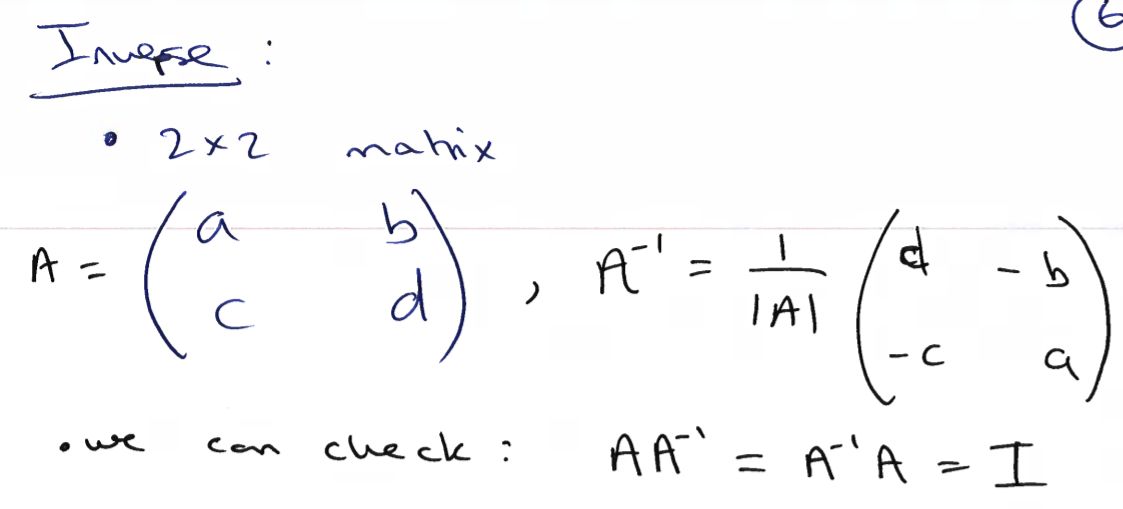 6
Inverse :
• 2×2 matrix
A = ( a b ; c d ) , A⁻¹ = 1/|A| ( d -b ; -c a )
• we can check : AA⁻¹ = A⁻¹A = I